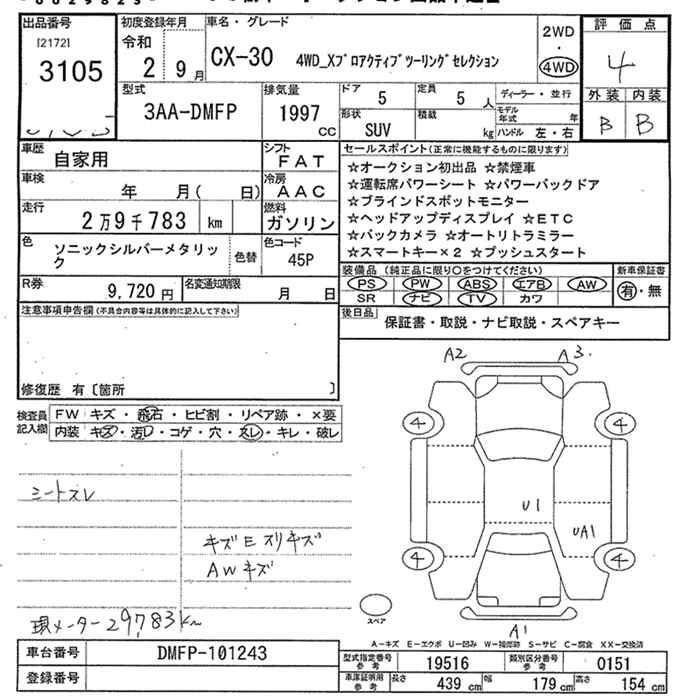 出品番号
[2172]
3105
初度登録年月
令和
2 9月
車名・グレード
CX-30 4WD_Xプロアクティブツーリングセレクション
2WD
・
4WD
評価点
4
外装 内装
B B
型式
3AA-DMFP
排気量
1997
CC
ドア
5
定員
5 人
ディーラー・並行
形状
SUV
積載
kg
モデル年式
年
ハンドル 左・右
車歴
自家用
シフト
FAT
車検
年 月( 日)
冷房
AAC
走行
2万9千783 km
燃料
ガソリン
色
ソニックシルバーメタリック
色替
色コード
45P
R券
9,720円
名変通知期限
月 日
セールスポイント(正常に機能するものに限ります)
☆オークション初出品 ☆禁煙車
☆運転席パワーシート ☆パワーバックドア
☆ブラインドスポットモニター
☆ヘッドアップディスプレイ ☆ETC
☆バックカメラ ☆オートリトラミラー
☆スマートキー×2 ☆プッシュスタート
装備品(純正品に限り○をつけてください)
PS PW ABS エアB AW
SR ナビ TV カワ
新車保証書
有・無
後日品
保証書・取説・ナビ取説・スペアキー
注意事項申告欄(不具合内容等は具体的に記入して下さい)
修復歴 有〔箇所 〕
検査員記入欄
FW キズ・飛石・ヒビ割・リペア跡・×要
内装 キズ・汚レ・コゲ・穴・スレ・キレ・破レ
シートスレ
キズE スリキズ
AWキズ
現メーター29783km
A2 A3
4 4
U1
UA1
4 4
スペア
A1
A-キズ E-エクボ U-凹み W-補修跡 S-サビ C-腐食 XX-交換済
車台番号
DMFP-101243
登録番号
型式指定番号
参考
19516
類別区分番号
参考
0151
車庫証明用
参考
長さ 439 cm 幅 179 cm 高さ 154 cm